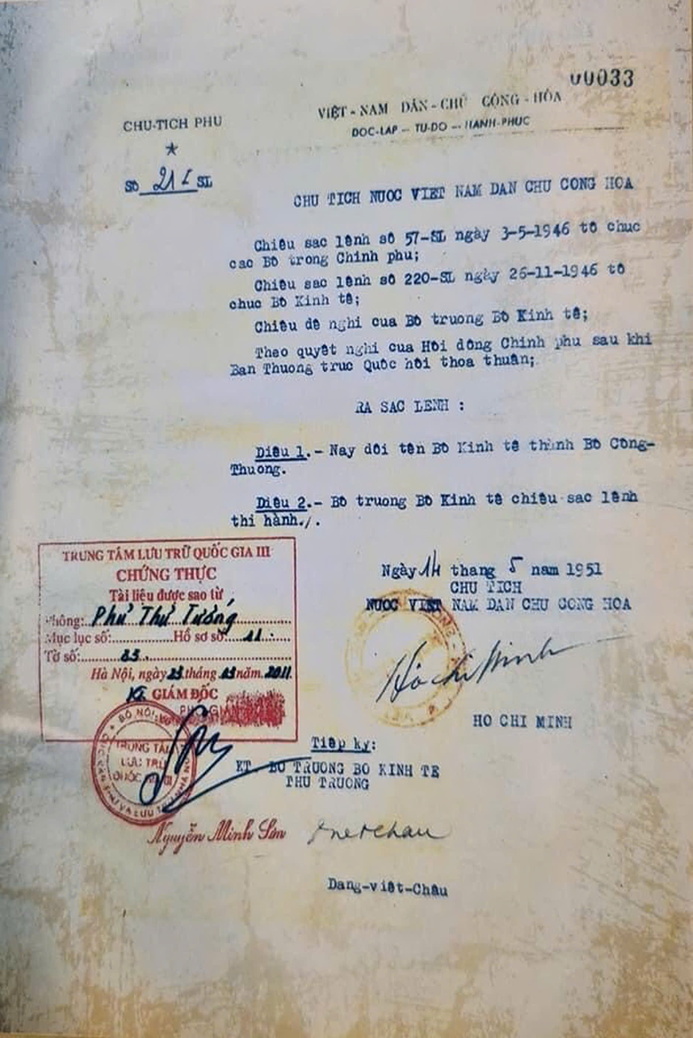 00033
VIỆT - NAM DÂN - CHỦ CỘNG - HÒA
ĐOC-LAP — TU-DO — HANH-PHUC
CHU-TICH PHU
★
Số 21 SL
CHU TICH NUOC VIET NAM DAN CHU CONG HOA
Chiêu sac lệnh số 57-SL ngày 3-5-1946 tô chuc
cac Bô trong Chinh phu;
Chiêu sac lệnh số 220-SL ngày 26-11-1946 tô
chuc Bô Kinh tê;
Chiêu đê nghi cua Bô truong Bô Kinh tê;
Theo quyêt nghi cua Hôi đông Chinh phu sau khi
Ban Thuong truc Quôc hôi thoa thuân;
RA SAC LENH :
Diêu 1.- Nay đôi tên Bô Kinh tê thành Bô Công-
Thuong.
Diêu 2.- Bô truong Bô Kinh tê chiêu sac lênh
thi hành./.
Ngày 14 thang 5 nam 1951
CHU TICH
NUOC VIET NAM DAN CHU CONG HOA
Hồ Chí Minh
HO CHI MINH
TRUNG TÂM LƯU TRỮ QUỐC GIA III
CHỨNG THỰC
Tài liệu được sao từ
Phông: Phủ Thủ Tướng
Mục lục số: Hồ sơ số: 11
Tờ số: 33.
Hà Nội, ngày 23 tháng 03 năm 2011
KT. GIÁM ĐỐC
BỘ NỘI VỤ
TRUNG TÂM
LƯU TRỮ
QUỐC GIA III
Nguyễn Minh Sơn
Tiêp ky:
KT. BO TRUONG BO KINH TE
THU TRUONG
Dang-viêt-Châu